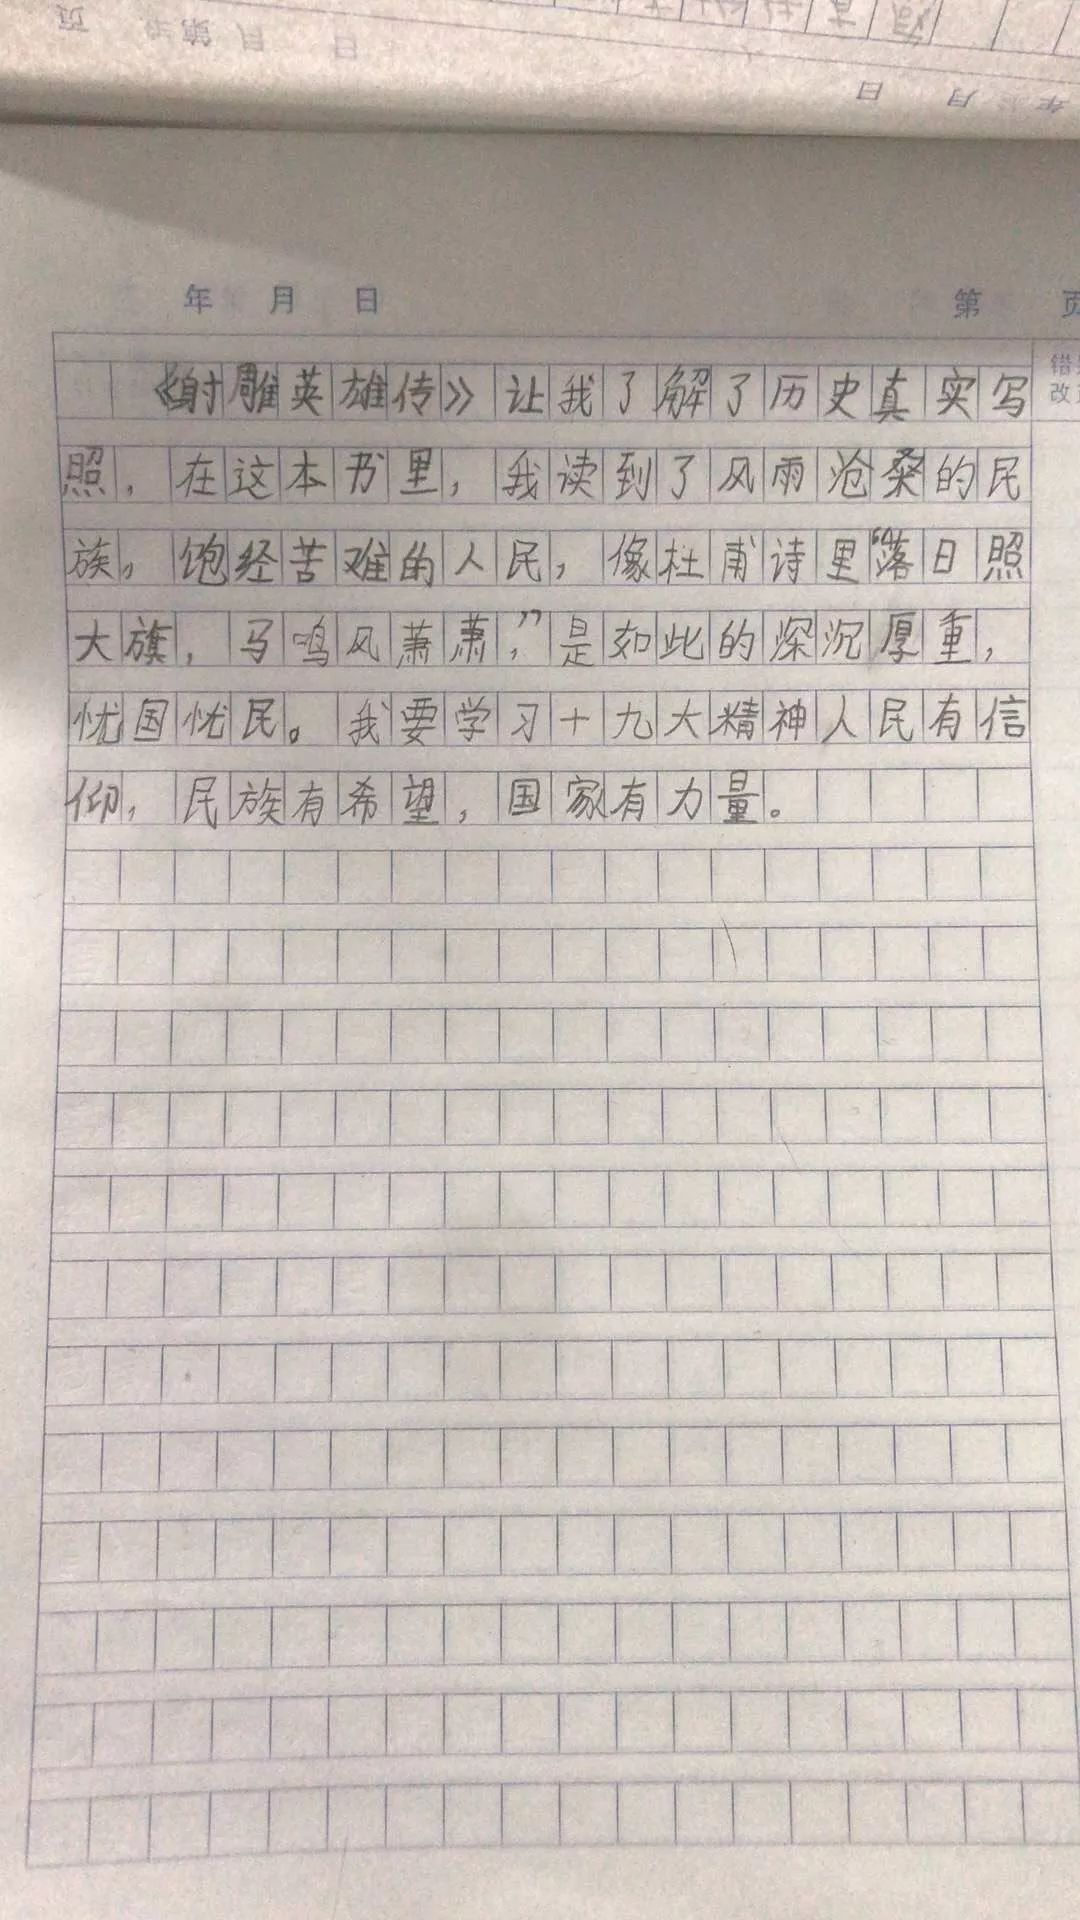 页 第 月 日
年 月 日
年 月 日 第 页
《射雕英雄传》让我了解了历史真实写
照，在这本书里，我读到了风雨沧桑的民
族，饱经苦难的人民，像杜甫诗里“落日照
大旗，马鸣风萧萧，”是如此的深沉厚重，
忧国忧民。我要学习十九大精神人民有信
仰，民族有希望，国家有力量。